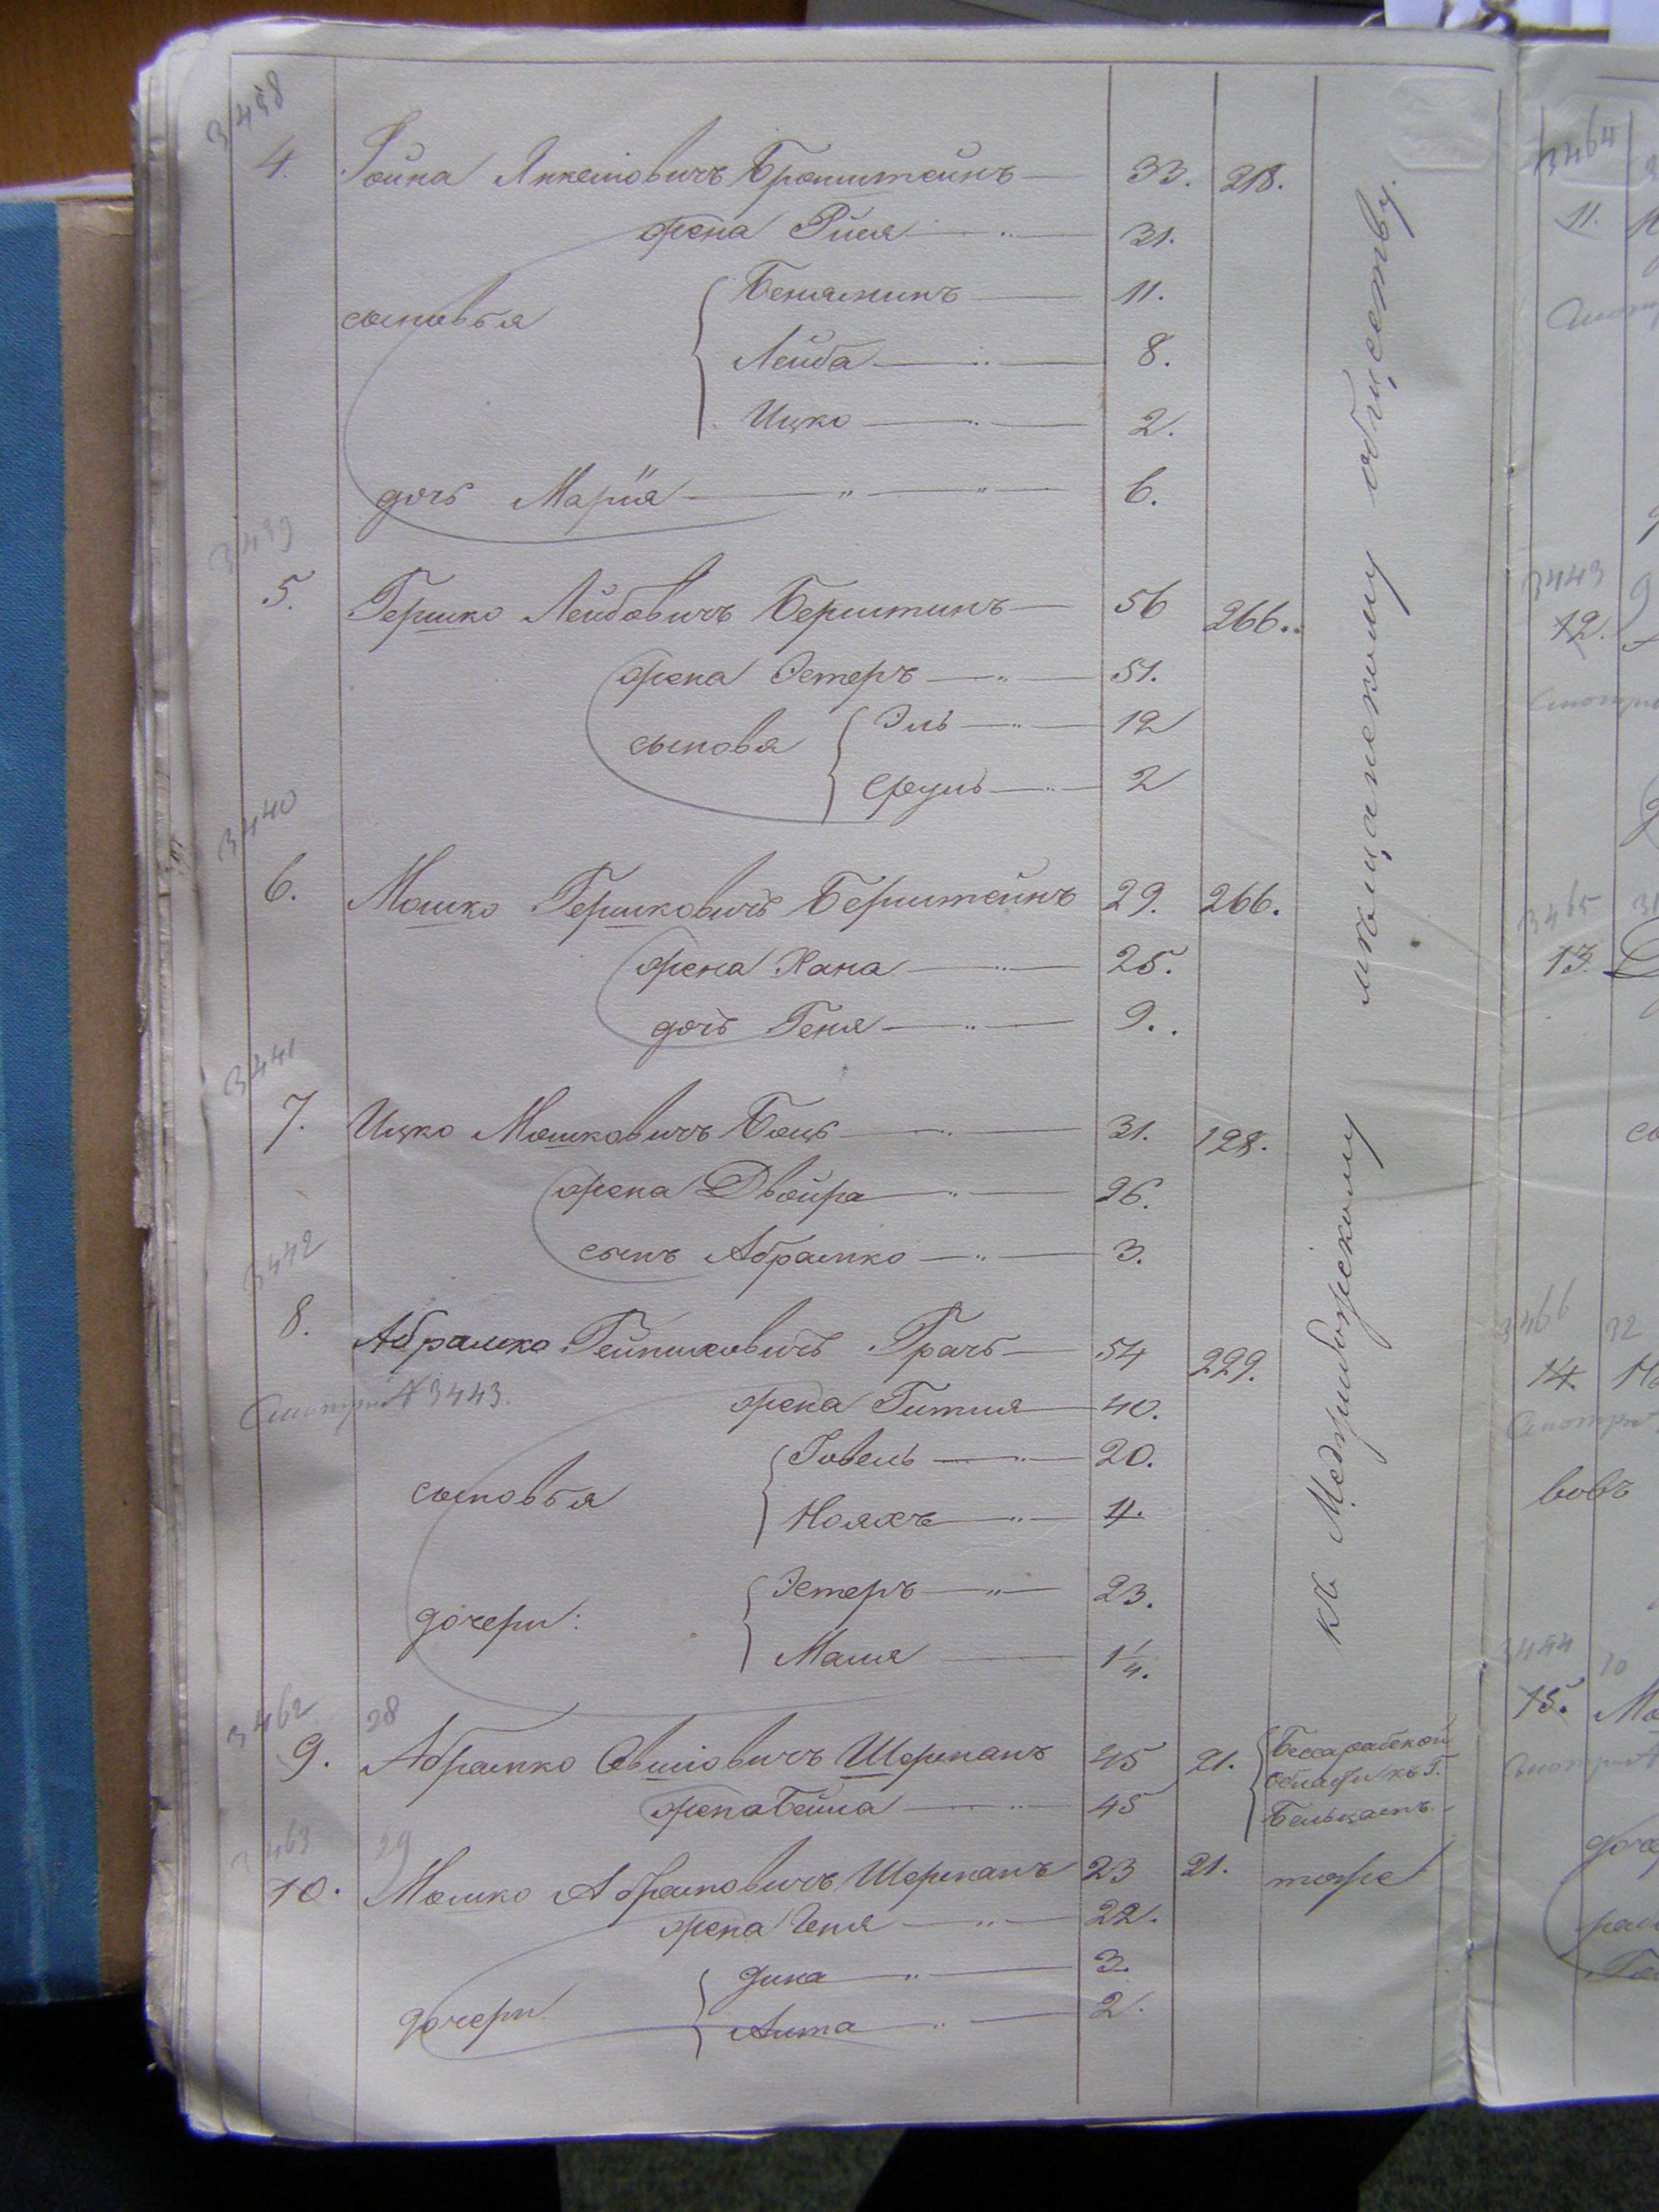 3438
4. Іойна Янкелiовичъ Бронштейнъ — 33. 218.
жена Рися — 31.
сыновья
Беньяминъ — 11.
Лейба — 8.
Ицко — 2.
дочь Марія — 6.
3439
5. Гершко Лейбовичъ Берштинъ — 56 266.
жена Эстеръ — 51.
сыновя
Эль — 12
Сруль — 2
3440
6. Мошко Гершковичъ Берштейнъ 29. 266.
жена Хана — 25.
дочь Геня — 9.
3441
7. Ицко Мошковичъ Боцъ — 31. 128.
жена Двойра — 26.
сынъ Абрамко — 3.
3442
8. Абрамко Грачъ — 54 229.
Смотри N 3443.
жена Гитля — 40.
сыновья
Іовель — 20.
Нояхъ — 4.
дочери:
Эстеръ — 23.
Маля — 1¼.
3462 28
9. Абрамко Овшiовичъ Шерманъ 45 21. Бессарабской
области къ г.
жена Бейла — 45
Бельцамъ.
3463 29
10. Мошко Абрамовичъ Шерманъ 23 21. тоже
жена Геня — 22.
дочери
Дина — 3.
Анта — 2.
къ Меджибожскому мѣщанскому обществу.
3464
11.
3443
12.
3465
13.
3466 32
14.
вовъ
3444 10
15.